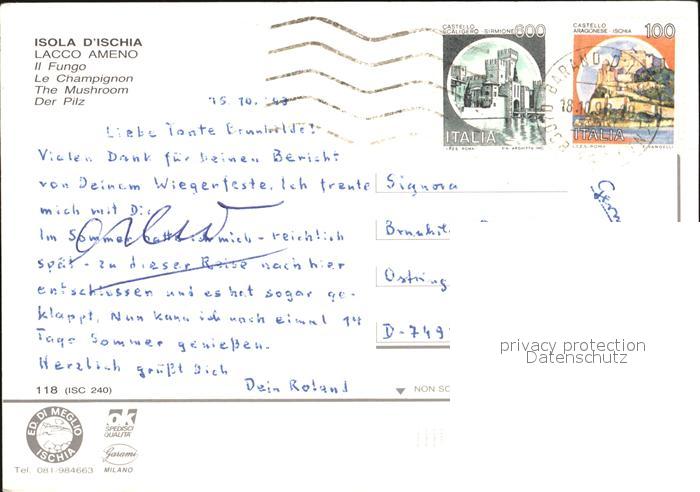 ISOLA D'ISCHIA
LACCO AMENO
Il Fungo
Le Champignon
The Mushroom
Der Pilz
CASTELLO
SCALIGERO - SIRMIONE
600
ITALIA
I.P.Z.S. ROMA
CASTELLO
ARAGONESE - ISCHIA
100
ITALIA
I.P.Z.S. ROMA
15.10.
Liebe Tante Brunhilde!
Vielen Dank für Deinen Bericht
von Deinem Wiegenfeste. Ich freute
mich mit Dir.
Im Sommer hatte ich mich - reichlich
spät - zu dieser Reise nach hier
entschlossen und es hat sogar ge-
klappt. Nun kann ich noch einmal 14
Tage Sommer genießen.
Herzlich grüßt Dich
Dein Roland
Signora
Brunhil
Ostring
D-749
privacy protection
Datenschutz
118 (ISC 240)
NON SC
ED. DI MEGLIO
ISCHIA
Tel. 081/984663
ok
SPEDISCI
QUALITA'
Garami
MILANO